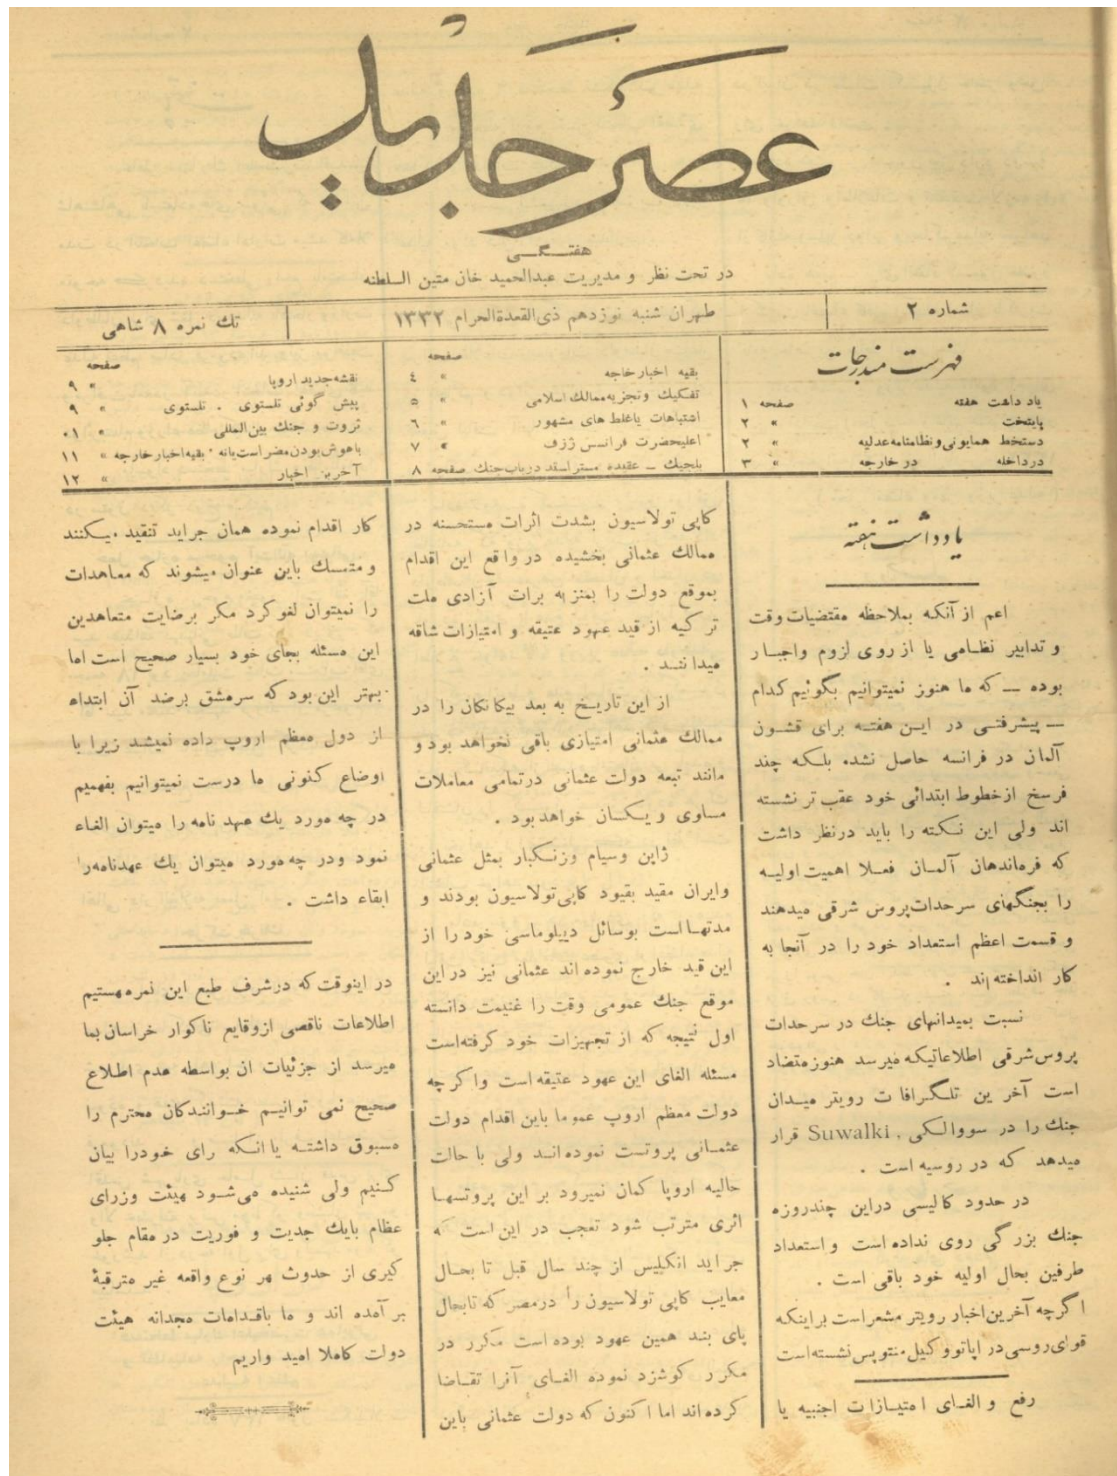 عصر جدید
هفتگی
در تحت نظر و مدیریت عبدالحمید خان متین السلطنه
شماره ۲
طهران شنبه نوزدهم ذی‌القعدةالحرام ۱۳۳۲
تك نمره ۸ شاهی
فهرست مندرجات
یاد داشت هفته صفحه ۱
پایتخت » ۲
دستخط همایونی ونظامنامه عدلیه » ۲
درداخله در خارجه » ۳
صفحه
بقیه اخبار خاجه » ٤
تفکیك وتجزیه ممالك اسلامی » ٥
اشتباهات یاغلط های مشهور » ٦
اعلیحضرت فرانسس ژزف » ۷
بلجیك ــ عقیده مستر اسقد درباب جنك صفحه ۸
صفحه
نقشه جدید اروپا » ۹
پیش گوئی تلستوی . تلستوی » ۹
ثروت و جنك بین‌المللی » ۰۱
باهوش بودن مضر است یانه ۰ بقیه اخبار خارجه » ۱۱
آخرین اخبار » ۱۲
یادداشت هفته
اعم از آنکه بملاحظه مقتضیات وقت
و تدابیر نظامی یا از روی لزوم واجبار
بوده ــ که ما هنوز نمیتوانیم بگوئیم کدام
ــ پیشرفتی در این هفته برای قشون
آلمان در فرانسه حاصل نشده بلکه چند
فرسخ از خطوط ابتدائی خود عقب تر نشسته
اند ولی این نکته را باید درنظر داشت
که فرماندهان آلمان فعلا اهمیت اولیه
را بجنگهای سرحدات پروس شرقی میدهند
و قسمت اعظم استعداد خود را در آنجا به
کار انداخته اند .
نسبت بمیدانهای جنك در سرحدات
پروس شرقی اطلاعاتیکه میرسد هنوز متضاد
است آخر ین تلگرافا ت رویتر میدان
جنك را در سووالکی , Suwalki قرار
میدهد که در روسیه است .
در حدود کالیسی دراین چندروزه
جنك بزر گی روی نداده است و استعداد
طرفین بحال اولیه خود باقی است .
ا گرچه آخرین اخبار رویتر مشعر است براینکه
قوای روسی در اپاتوو کیل منتو پس نشسته است
رفع و الغای امتیازات اجنبیه یا
کاپی تولاسیون بشدت اثرات مستحسنه در
ممالك عثمانی بخشیده در واقع این اقدام
بموقع دولت را بمنزله برات آزادی ملت
تر کیه از قید عهود عتیقه و امتیازات شاقه
میدا نند .
از این تاریخ به بعد بیکانکان را در
ممالك عثمانی امتیازی باقی نخواهد بود و
مانند تبعه دولت عثمانی درتمامی معاملات
مساوی و یکسان خواهد بود .
ژاپن وسیام وزنکبار بمثل عثمانی
وایران مقید بقیود کاپی تولاسیون بودند و
مدتها است بوسائل دیپلوماسی خود را از
این قید خارج نموده اند عثمانی نیز در این
موقع جنك عمومی وقت را غنیمت دانسته
اول نتیجه که از تجهیزات خود کرفته است
مسئله الغای این عهود عتیقه است واکر چه
دولت معظم اروپ عموما باین اقدام دولت
عثمانی پروتست نموده اند ولی با حالت
حالیه اروپا کمان نمیرود بر این پروتسها
اثری مترتب شود تعجب در این است که
جراید انکلیس از چند سال قبل تا بحال
معایب کاپی تولاسیون را درمصر که تابحال
پای بند همین عهود بوده است مکرر در
مکرر کوشزد نموده الغای آنرا تقاضا
کرده اند اما ا کنون که دولت عثمانی باین
کار اقدام نموده همان جراید تنقید میکنند
و متمسك باین عنوان میشوند که معاهدات
را نمیتوان لغو کرد مکر برضایت متعاهدین
این مسئله بجای خود بسیار صحیح است اما
بهتر این بود که سرمشق برضد آن ابتداء
از دول معظم اروپ داده نمیشد زیرا با
اوضاع کنونی ما درست نمیتوانیم بفهمیم
در چه مورد یك عهد نامه را میتوان الغاء
نمود ودر چه مورد میتوان یك عهدنامه را
ابقاء داشت .
در اینوقت که درشرف طبع این نمره هستیم
اطلاعات ناقصی ازوقایع ناکوار خراسان بما
میرسد از جزئیات ان بواسطه عدم اطلاع
صحیح نمی توانیم خوانندکان محترم را
مسبوق داشته یا انکه رای خودرا بیان
کنیم ولی شنیده می‌شود هیئت وزرای
عظام بایك جدیت و فوریت در مقام جلو
کیری از حدوث هر نوع واقعه غیر مترقبهٔ
بر آمده اند و ما باقدامات مجدانه هیئت
دولت کاملا امید واریم